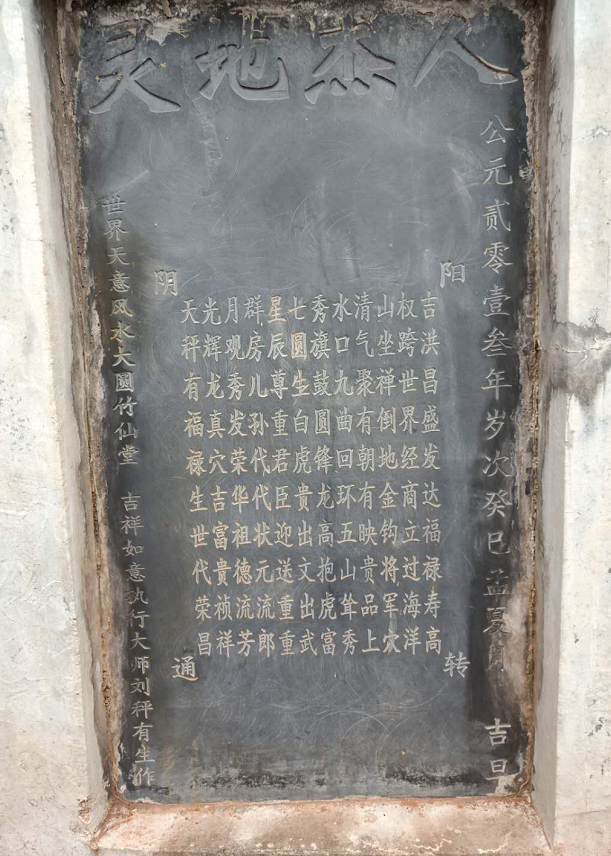 人杰地灵
公元贰零壹叁年岁次癸巳孟夏月 吉旦
阳
转
吉洪昌盛发达福禄寿高
权跨世界经商立过海洋
山坐禅倒地金钩将军穴
清气聚有朝有映贵品上
水口九曲回环五山耸秀
秀旗鼓圆锋龙高抱虎富
七圆生白虎贵出文出武
星辰尊重君臣迎送重重
群房儿孙代代状元流郎
月观秀发荣华祖德流芳
光辉龙真穴吉富贵祯祥
天秤有福禄生世代荣昌
阴
通
世界天意风水大圓竹仙堂 吉祥如意执行大师刘秤有生作